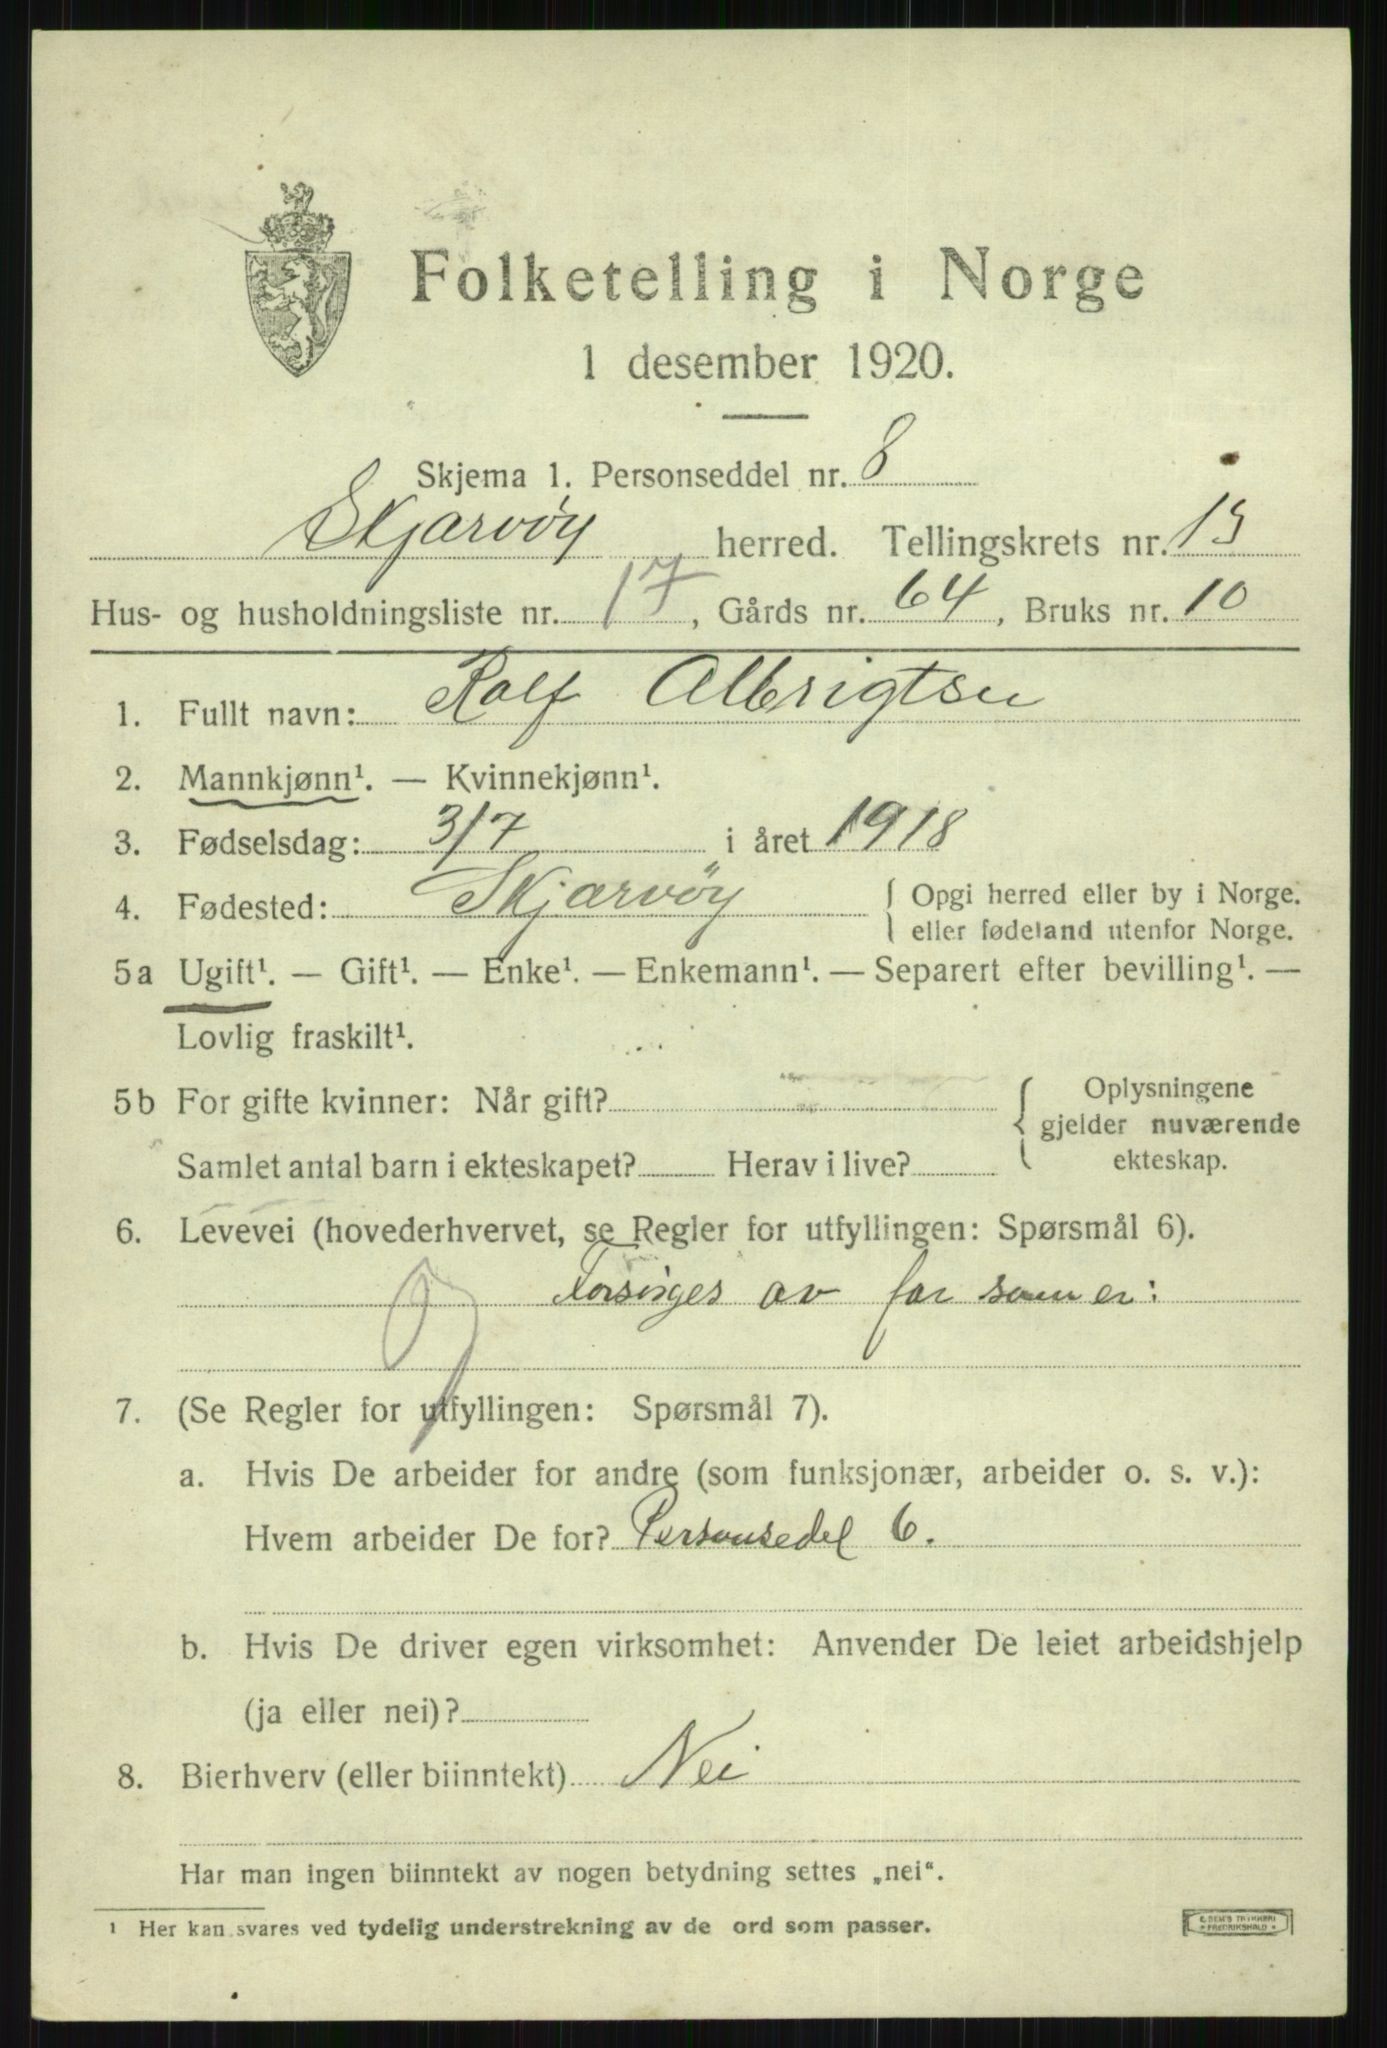 Folketelling i Norge
1 desember 1920.
Skjema 1. Personseddel nr. 8
Skjærvøy herred. Tellingskrets nr. 13
Hus- og husholdningsliste nr. 17, Gårds nr. 64, Bruks nr. 10
1. Fullt navn: Rolf Albrigtsen
2. Mannkjønn¹. — Kvinnekjønn¹.
3. Fødselsdag: 3/7 i året 1918
4. Fødested: Skjærvøy { Opgi herred eller by i Norge.
eller fødeland utenfor Norge.
5a Ugift¹. — Gift¹. — Enke¹. — Enkemann¹. — Separert efter bevilling¹. —
Lovlig fraskilt¹.
5b For gifte kvinner: Når gift? { Oplysningene
gjelder nuværende
Samlet antal barn i ekteskapet? Herav i live? ekteskap.
6. Levevei (hovederhvervet, se Regler for utfyllingen: Spørsmål 6).
Forsørges av far som er:
7. (Se Regler for utfyllingen: Spørsmål 7).
a. Hvis De arbeider for andre (som funksjonær, arbeider o. s. v.):
Hvem arbeider De for? Personsedel 6.
b. Hvis De driver egen virksomhet: Anvender De leiet arbeidshjelp
(ja eller nei)?
8. Bierhverv (eller biinntekt) Nei
Har man ingen biinntekt av nogen betydning settes „nei“.
¹ Her kan svares ved tydelig understrekning av de ord som passer.
FREDRIKSHALD